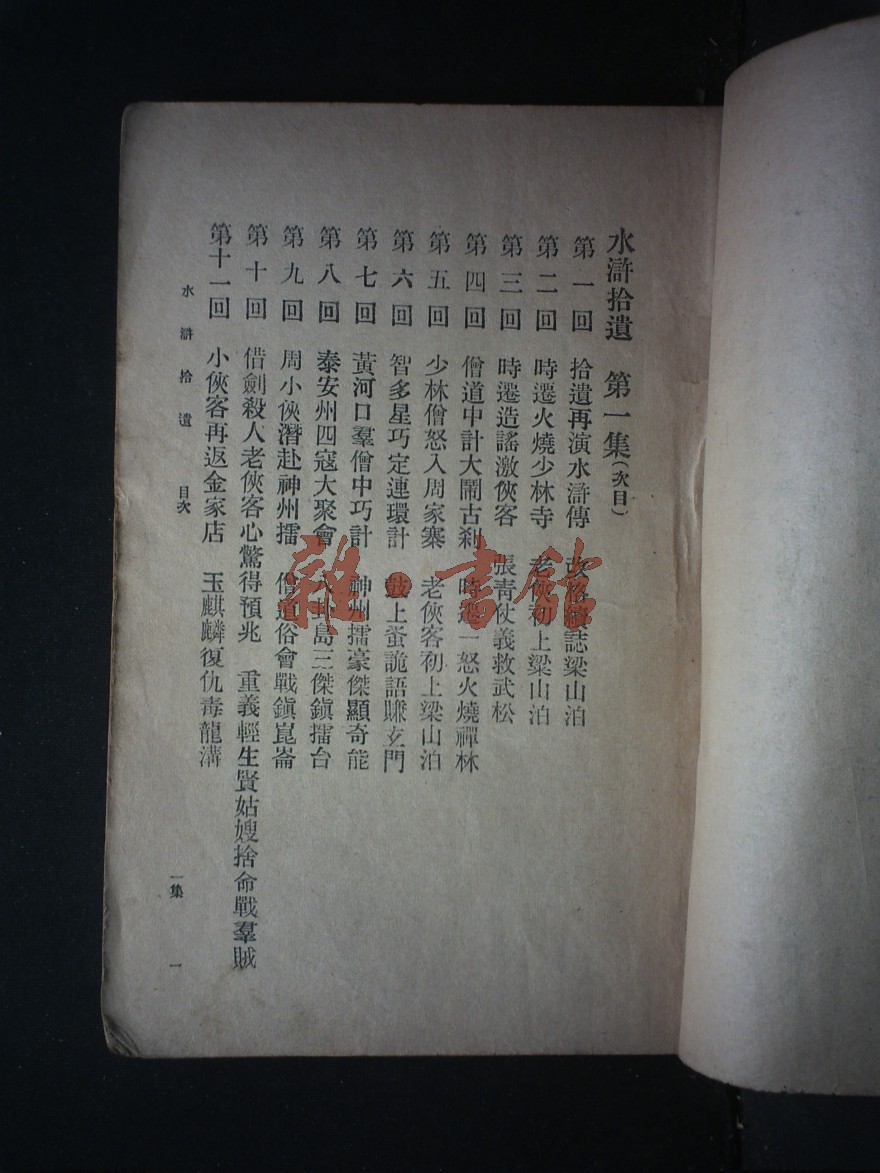 水滸拾遺　第一集（次目）
第一回　拾遺再演水滸傳　改俗續誌梁山泊
第二回　時遷火燒少林寺　老俠初上梁山泊
第三回　時遷造謠激俠客　張青仗義救武松
第四回　僧道中計大鬧古刹　時遷一怒火燒禪林
第五回　少林僧怒入周家寨　老俠客初上梁山泊
第六回　智多星巧定連環計　鼓上蚤詭語賺玄門
第七回　黃河口羣僧中巧計　神州擂豪傑顯奇能
第八回　泰安州四寇大聚會　八卦島三傑鎮擂台
第九回　周小俠潛赴神州擂　僧道俗會戰鎮崑崙
第十回　借劍殺人老俠客心驚得預兆　重義輕生賢姑嫂捨命戰羣賊
第十一回　小俠客再返金家店　玉麒麟復仇毒龍溝
水滸拾遺　目次　一集　一
雜·書館